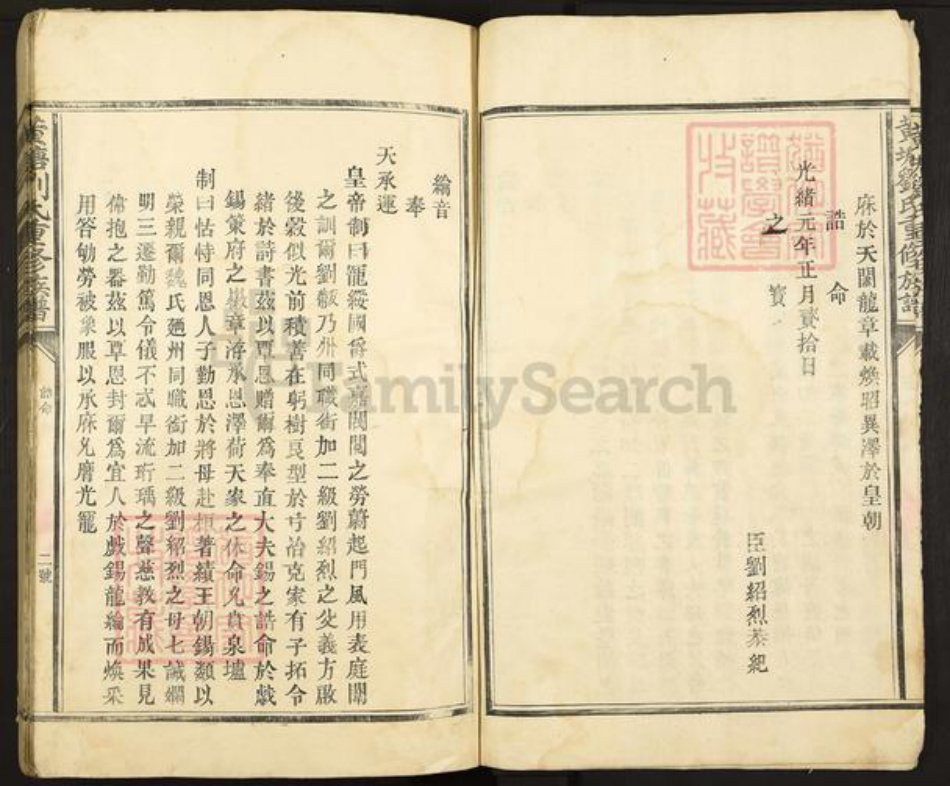 庥於天闕龍章載煥昭異澤於皇朝
誥命
光緒元年正月貳拾日
之寶
臣劉紹烈恭紀
綸音
奉
天承運
皇帝制曰寵綏國爵式嘉閥閱之勞蔚起門風用表庭闈
之訓爾劉 乃州同職銜加二級劉紹烈之父義方啟
後穀似光前積善在躬樹良型於弓冶克家有子拓令
緒於詩書茲以覃恩贈爾為奉直大夫錫之誥命於戲
錫策府之徽章洊承恩澤荷天家之休命允賁泉壚
制曰怙恃同恩人子勤思於將母赳桓著績王朝錫類以
榮親爾魏氏廼州同職銜加二級劉紹烈之母七誡嫻
明三遷勤篤令儀不忒早流珩瑀之聲慈教有成果見
偹抱之器茲以覃恩封爾為宜人於戲錫龍綸而煥采
用答劬勞被象服以承庥允膺光寵
黃塘劉氏重修族譜
誥命
二號
黃塘劉氏重修族譜
FamilySearch